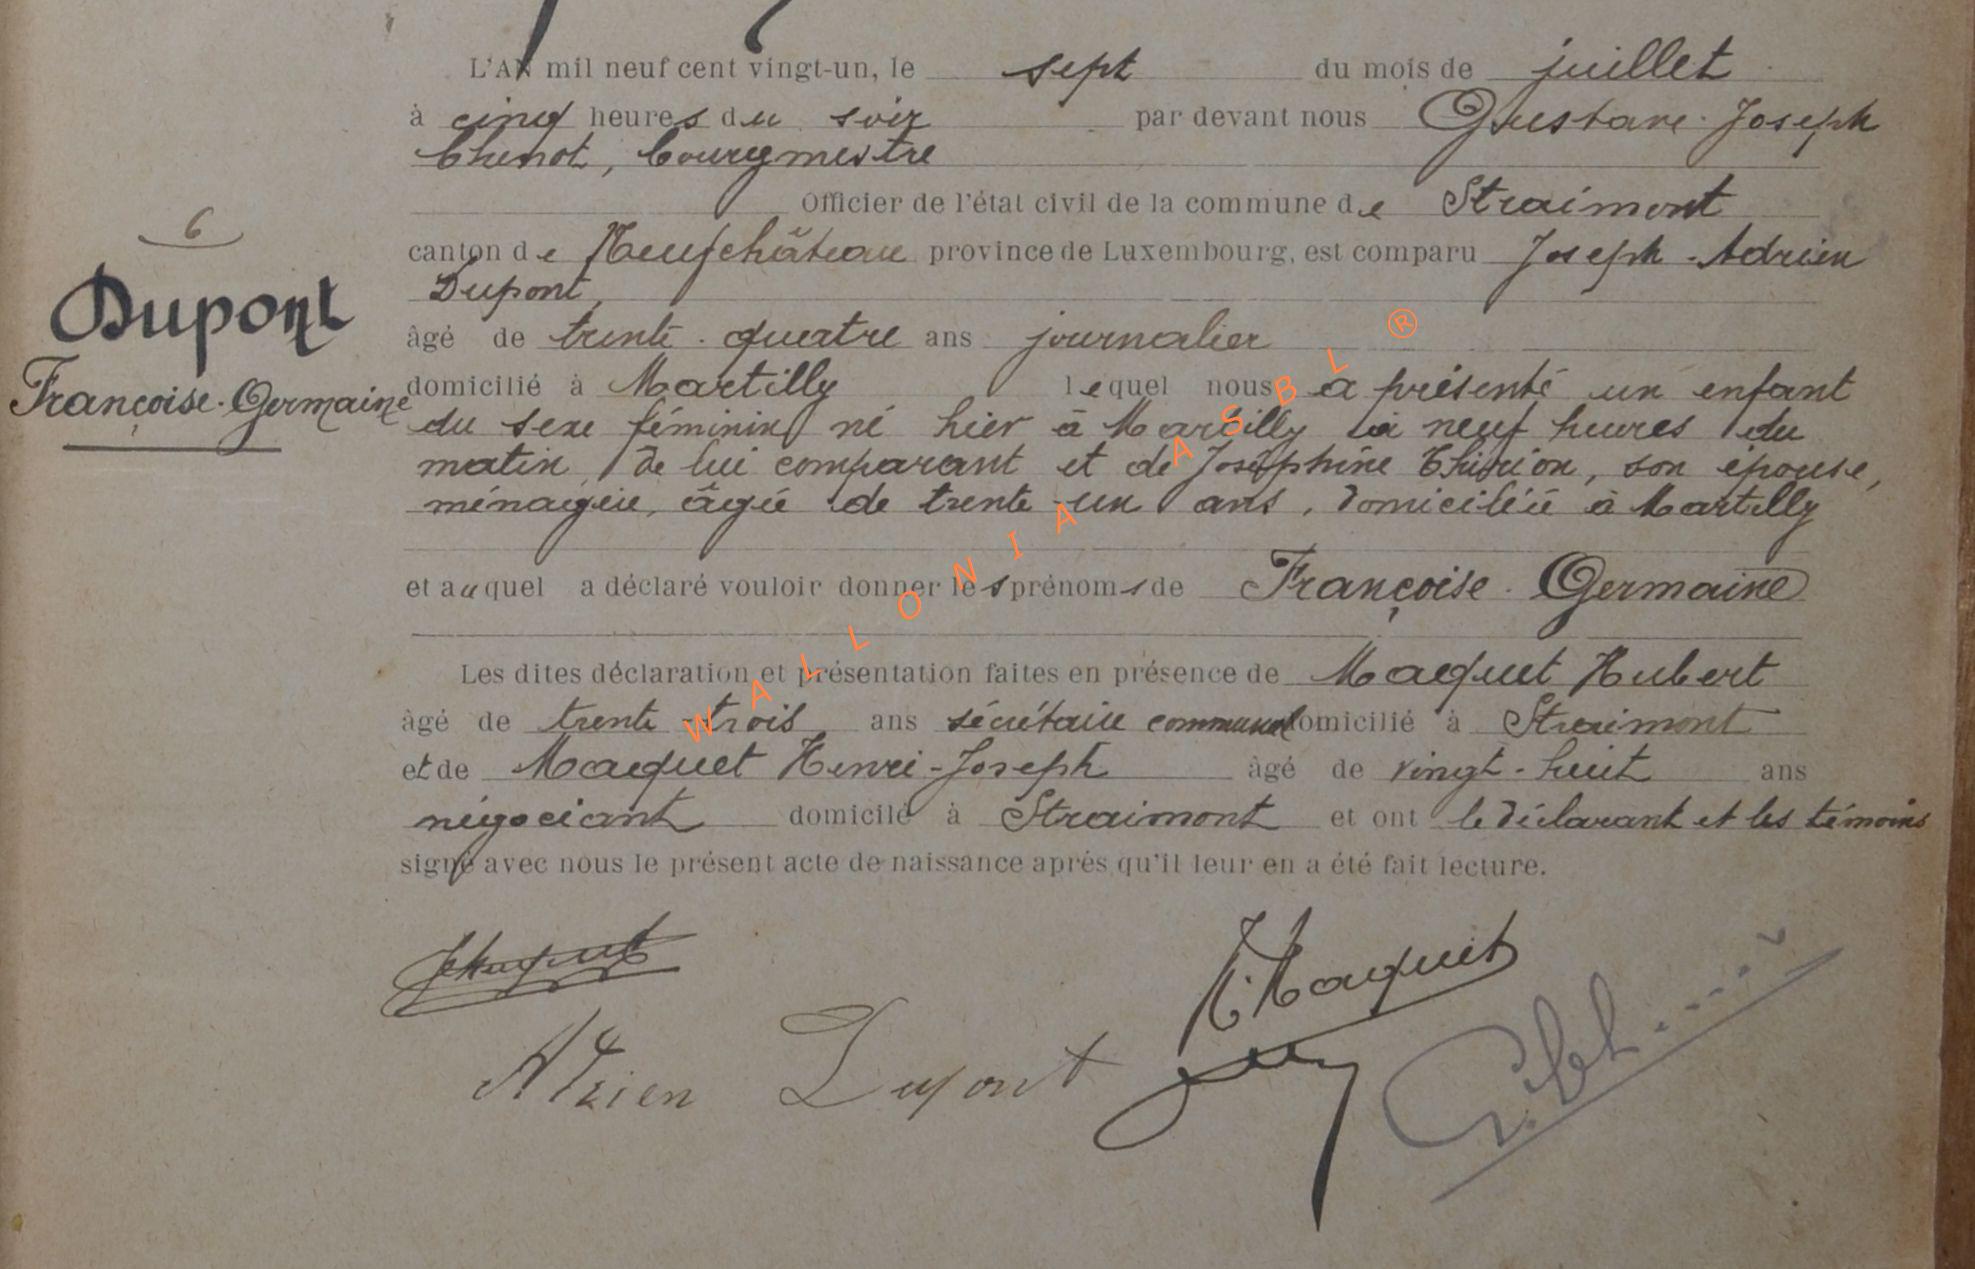 L'AN mil neuf cent vingt-un, le sept du mois de juillet
à cinq heures du soir par devant nous Gustave-Joseph
Chenot, bourgmestre
Officier de l'état civil de la commune de Straimont
6
canton de Neufchâteau province de Luxembourg, est comparu Joseph-Adrien
Dupont,
Dupont
âgé de trente-quatre ans journalier
Françoise-Germaine
domicilié à Martilly lequel nous a présenté un enfant
du sexe féminin né hier à Martilly à neuf heures du
matin, de lui comparant et de Joséphine Thirion, son épouse,
ménagère, âgée de trente-un ans, domiciliée à Martilly
et auquel a déclaré vouloir donner les prénoms de Françoise-Germaine
Les dites déclaration et présentation faites en présence de Maquet Hubert
âgé de trente-trois ans secrétaire communal domicilié à Straimont
et de Maquet Henri-Joseph âgé de vingt-huit ans
négociant domicilé à Straimont et ont le déclarant et les témoins
signé avec nous le présent acte de naissance après qu'il leur en a été fait lecture.
H. Maquet
Adrien Dupont
WALLONIA ASBL ®